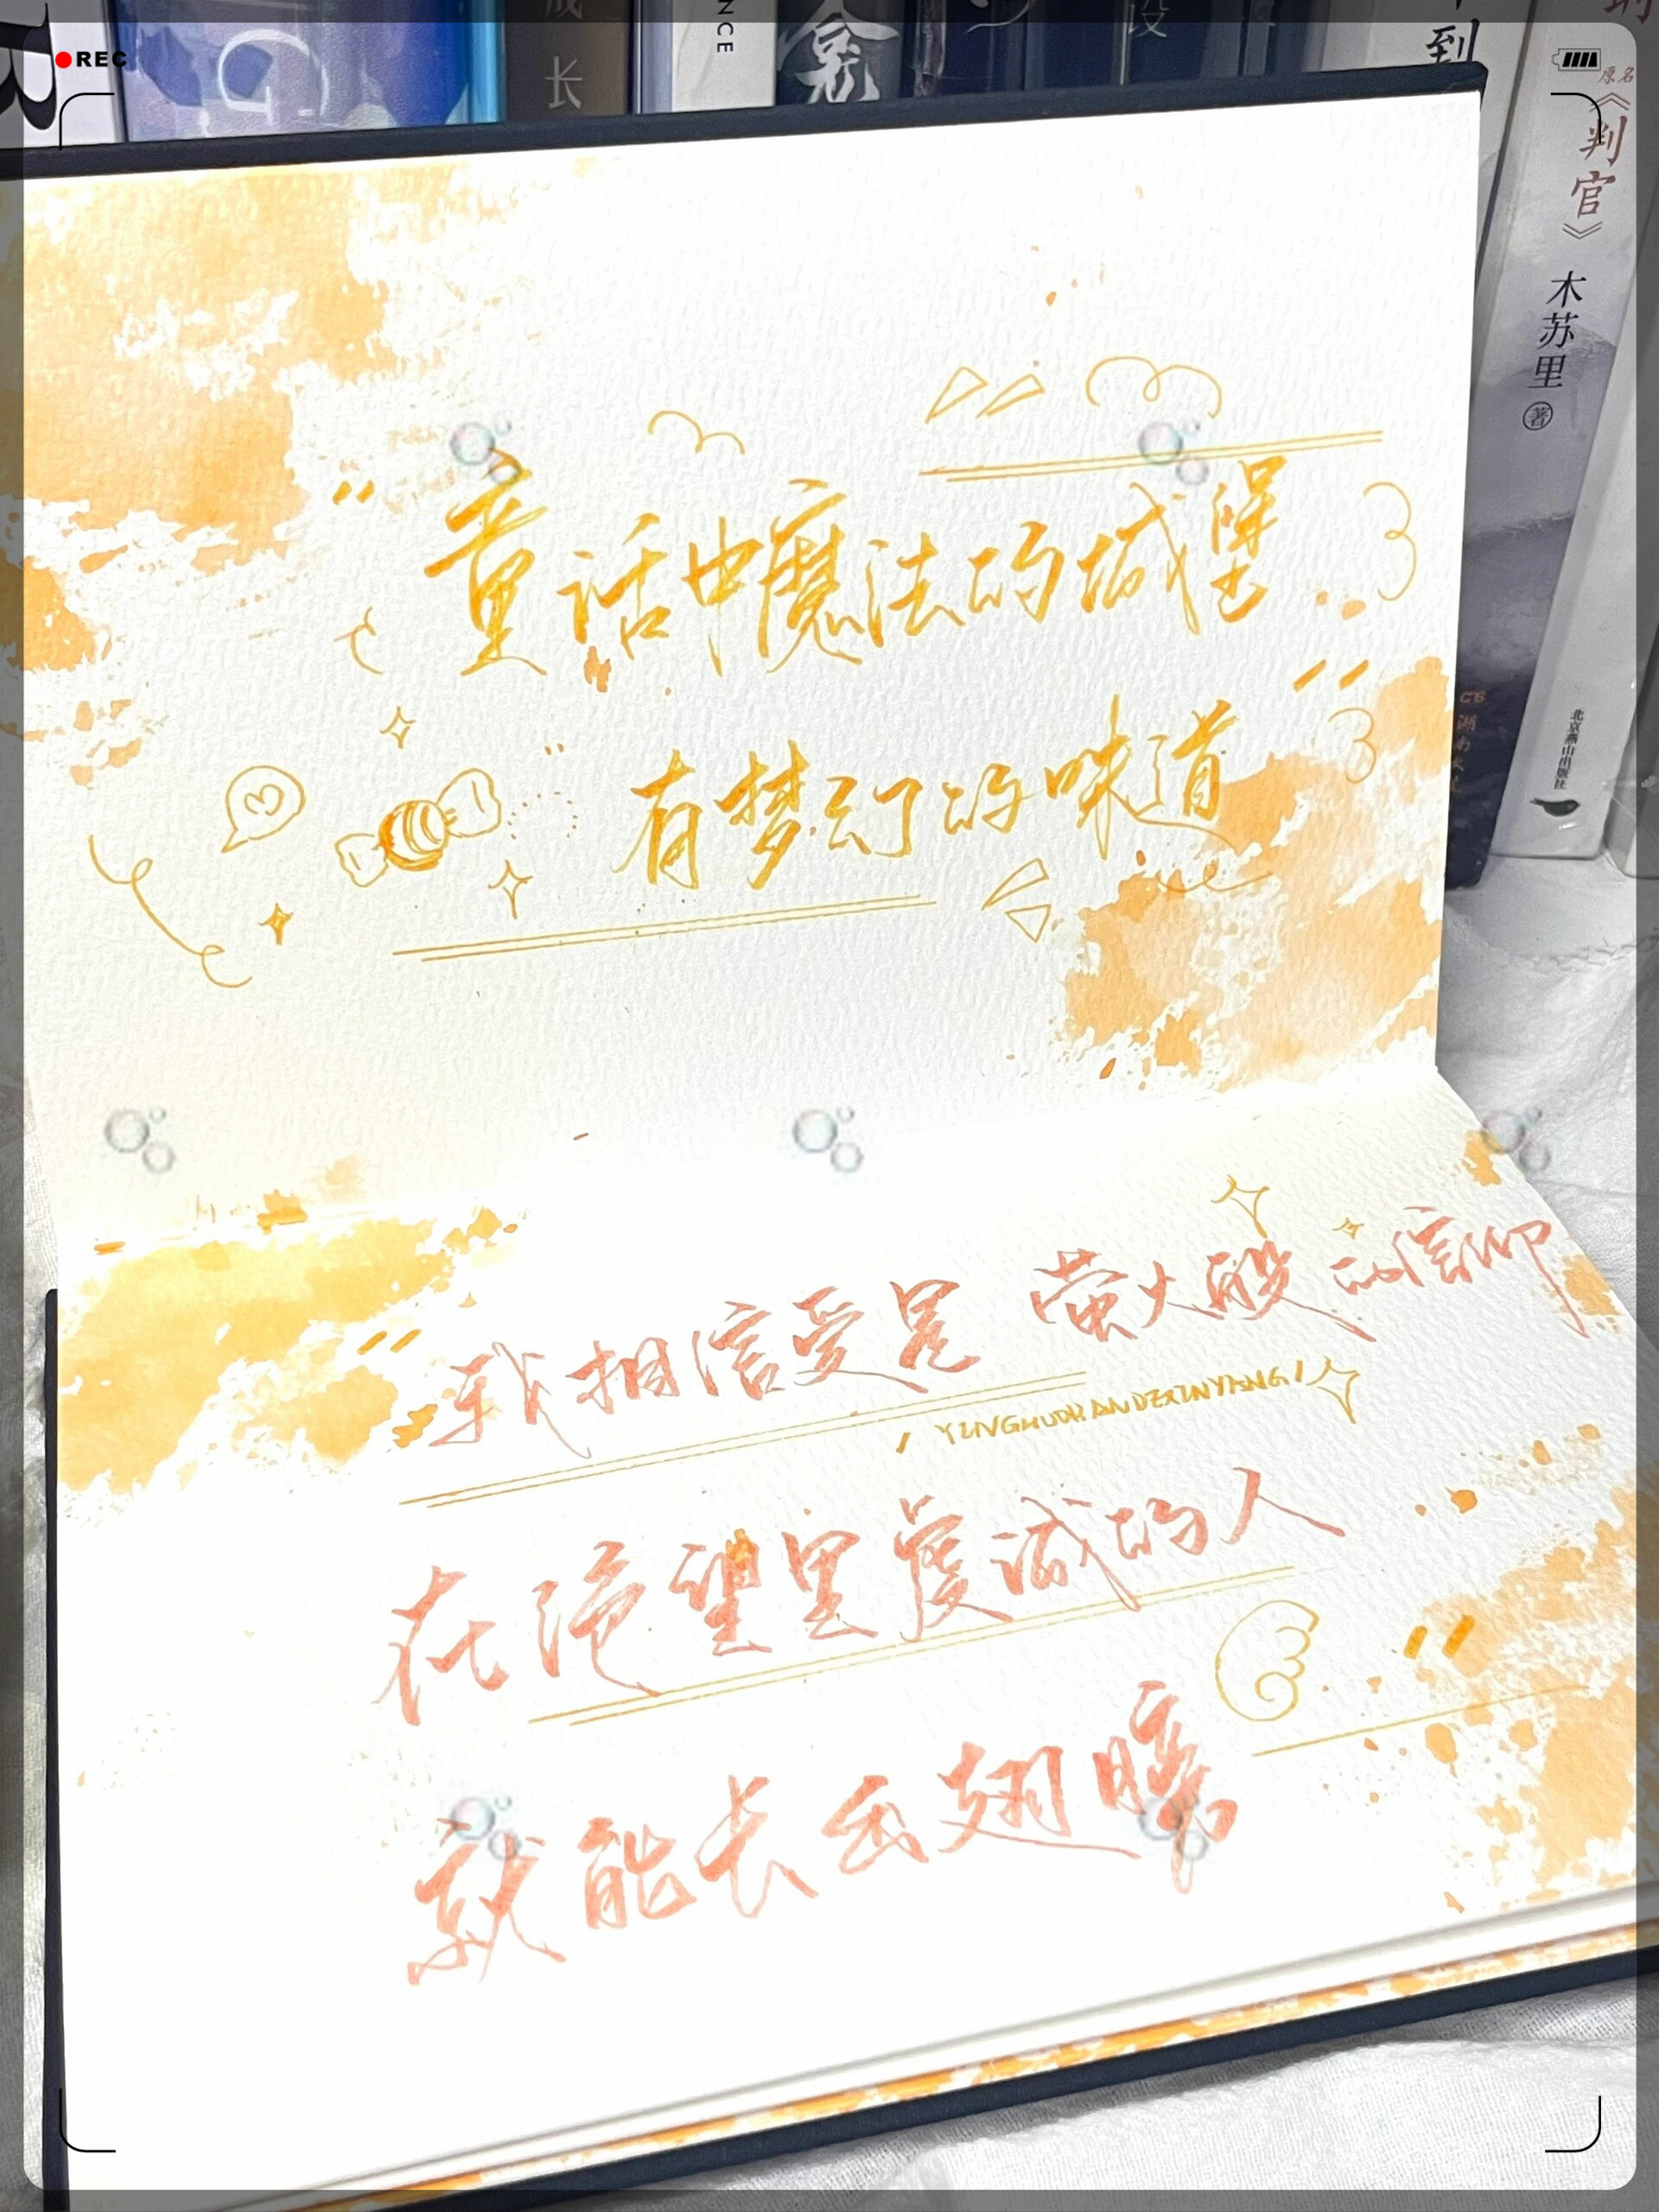 REC
长
NCE
设
到
原名
《判官》
木苏里 著
北京燕山出版社
“童话中魔法的城堡
有梦幻的味道”
“我相信爱是 萤火般的信仰
/ YINGHUOBANDEXINYANG /
在绝望里虔诚的人
就能长出翅膀”